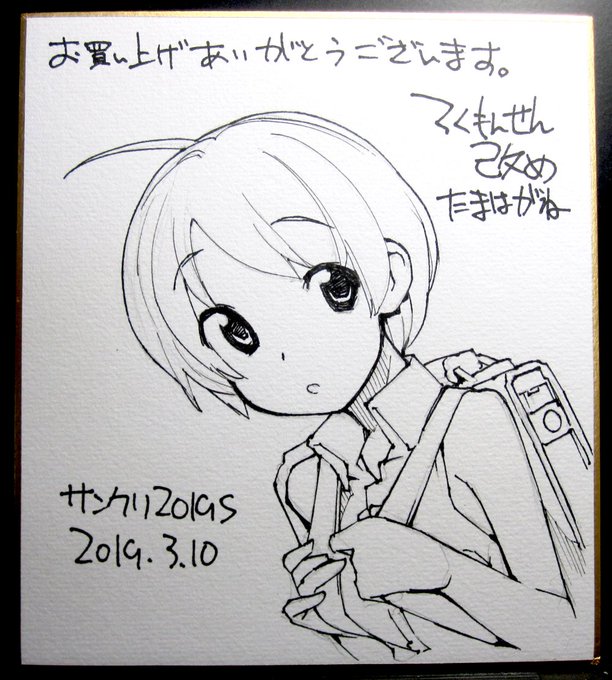 お買い上げありがとうございます。
ろくもんせん
改め
たまはがね
サンクリ2019S
2019.3.10